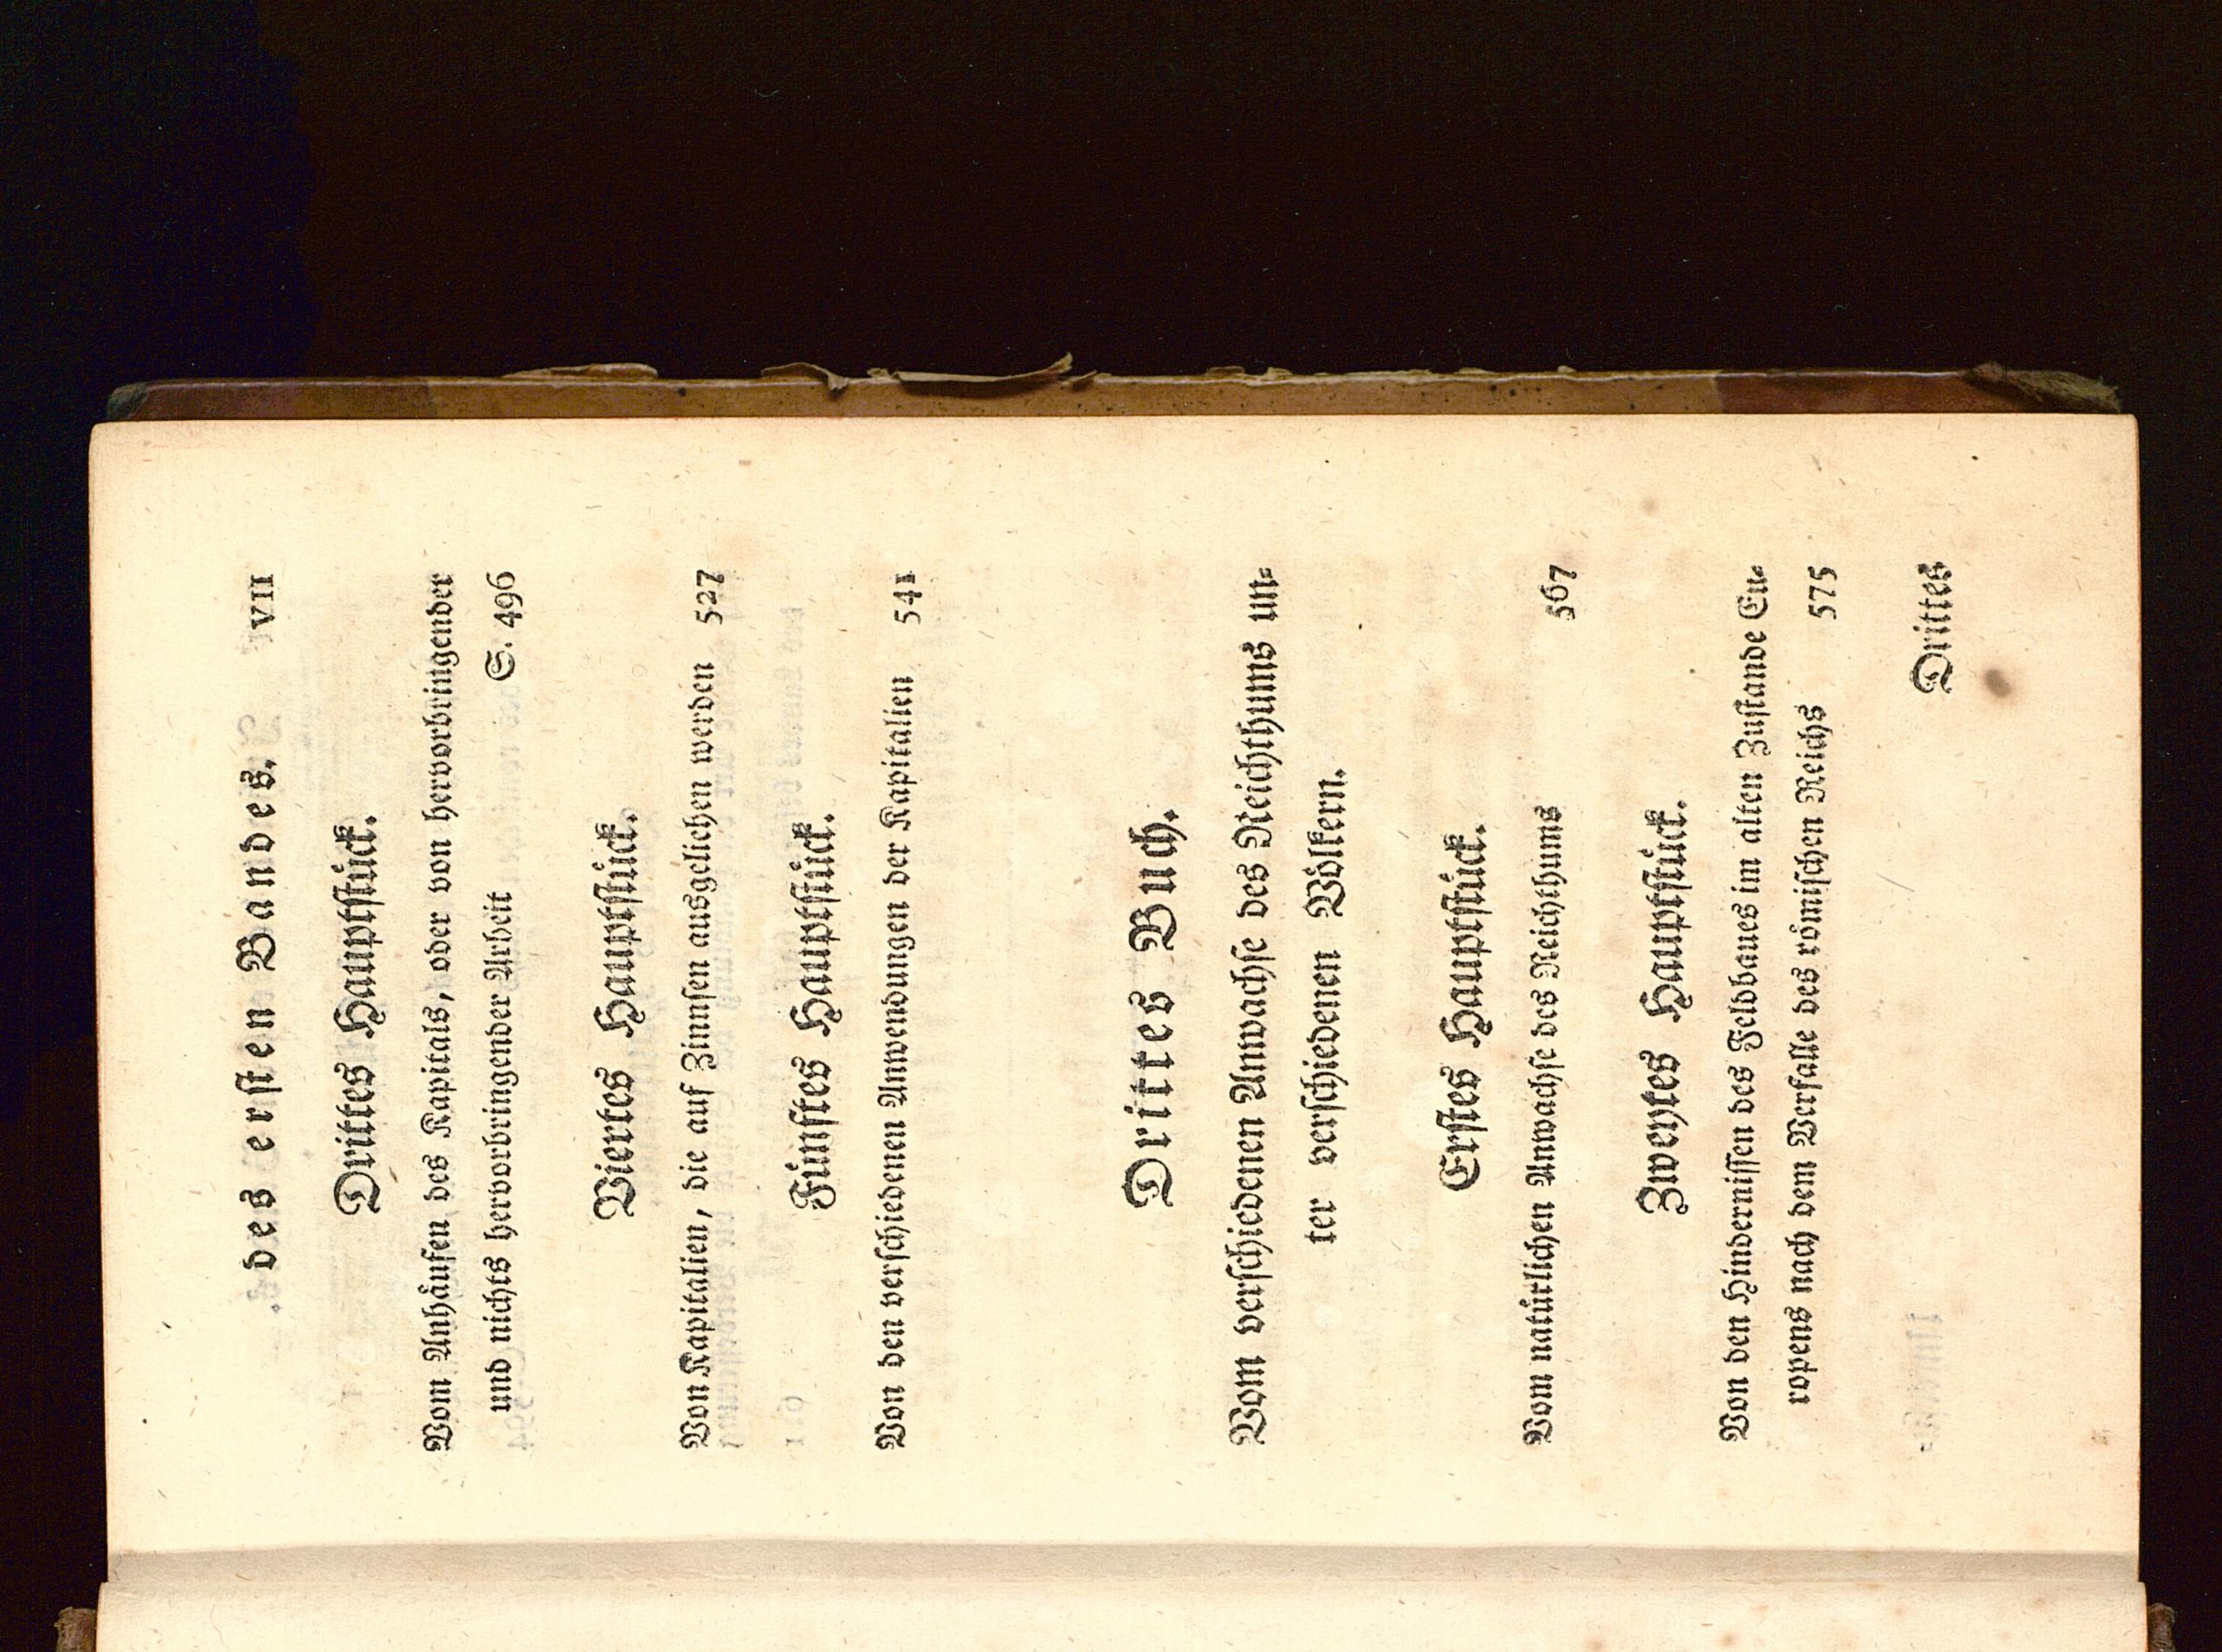 des ersten Bandes. VII
Drittes Hauptstück.
Vom Anhäufen des Kapitals, oder von hervorbringender
und nichts hervorbringender Arbeit S. 496
Viertes Hauptstück.
Von Kapitalien, die auf Zinnsen ausgelichen werden 527
Fünftes Hauptstück.
Von den verschiedenen Anwendungen der Kapitalien 541
Drittes Buch.
Vom verschiedenen Anwachse des Reichthums un-
ter verschiedenen Völkern.
Erstes Hauptstück.
Vom natürlichen Anwachse des Reichthums 567
Zweytes Hauptstück.
Von den Hindernissen des Feldbaues im alten Zustande Eu-
ropens nach dem Verfalle des römischen Reichs 575
Drittes